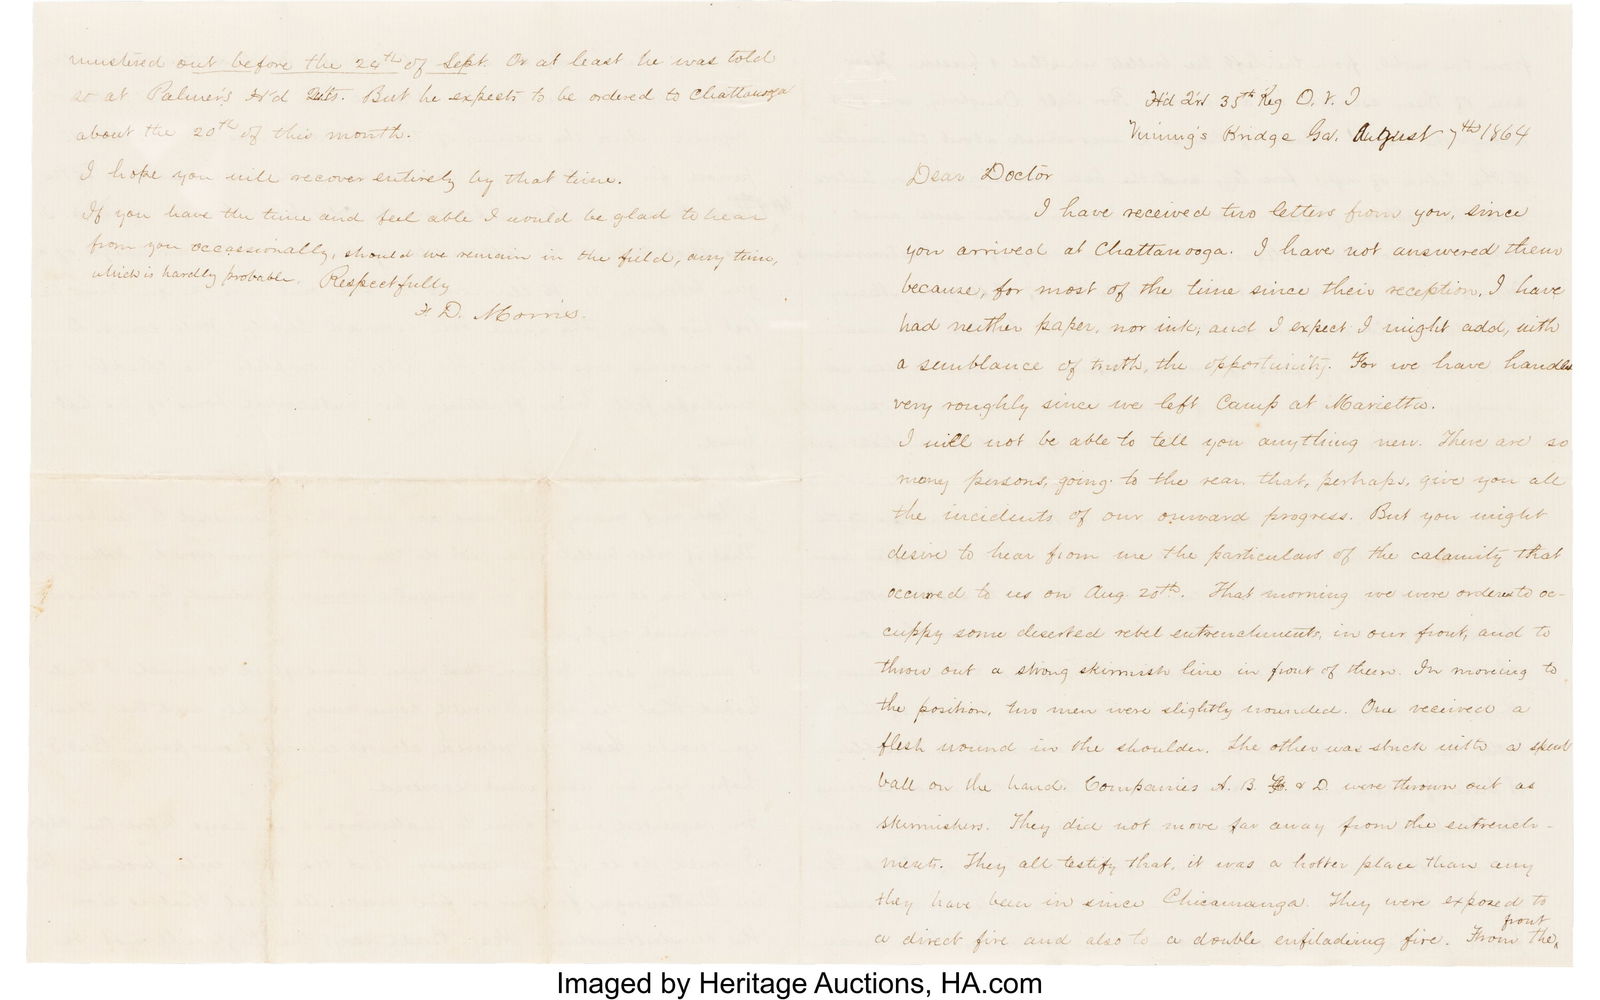 mustered out before the 24th of Sept. Or at least he was told
so at Palmer's H'd Qts. But he expects to be ordered to Chattanooga
about the 20th of this month.
I hope you will recover entirely by that time.
If you have the time and feel able I would be glad to hear
from you occassionally, should we remain in the field, any time,
which is hardly probable. Respectfully
F D. Morris.
H'd Q'rs 35th Reg O. V. I
Vining's Bridge Ga. August 7th 1864
Dear Doctor
I have received two letters from you, since
you arrived at Chattanooga. I have not answered them
because, for most of the time since their reception, I have
had neither paper, nor ink; and I expect I might add, with
a semblance of truth, the opportunity. For we have handled
very roughly since we left Camp at Marietta.
I will not be able to tell you anything new. There are so
many persons, going to the rear that, perhaps, give you all
the incidents of our onward progress. But you might
desire to hear from me the particulars of the calamity that
occured to us on Aug 20th. That morning we were ordered to oc-
cuppy some deserted rebel entrenchments, in our front, and to
throw out a strong skirmish line in front of them. In moveing to
the position, two men were slightly wounded. One received a
flesh wound in the shoulder. The other was struck with a spent
ball on the hand. Companies A. B. & D. were thrown out as
skirmishers. They did not move far away from the entrench-
ments. They all testify that, it was a hotter place than any
they have been in since Chicamauga. They were exposed to
a direct fire and also to a double enfilading fire. From the front
Imaged by Heritage Auctions, HA.com